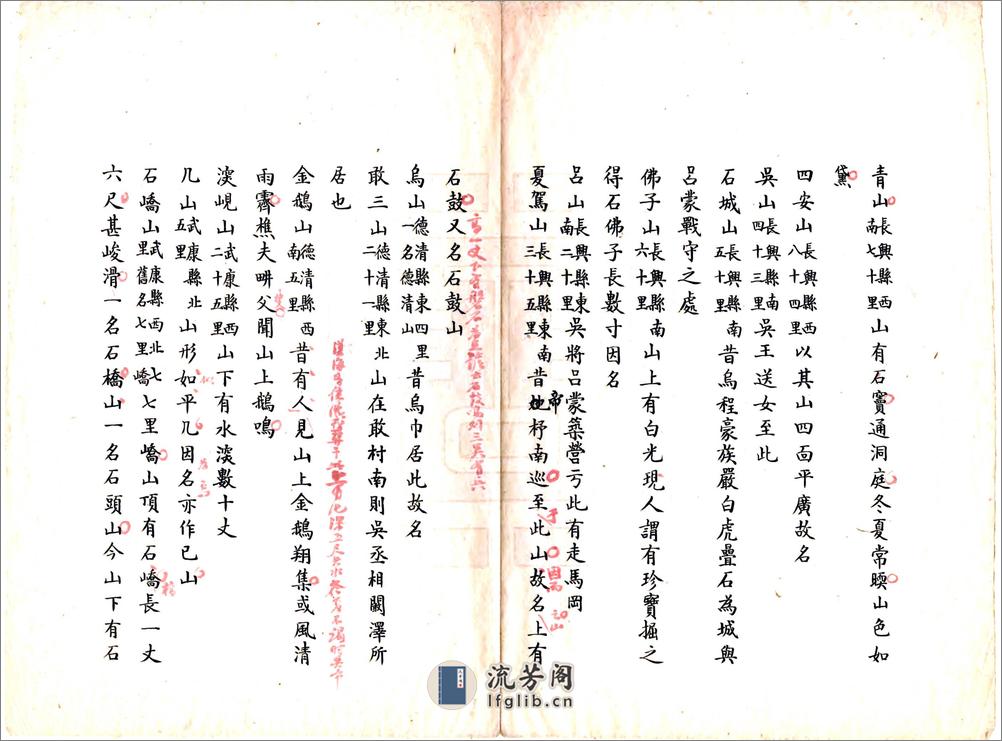 青山長興縣南七十里西山有石竇通洞庭冬夏常暝山色如
黛
四安山長興縣西八十四里以其山四面平廣故名
吳山長興縣南四十三里吳王送女至此
石城山長興縣五十里南昔烏程豪族嚴白虎壘石為城與
呂蒙戰守之處
佛子山長興縣六十里南山上有白光現人謂有珍寶掘之
得石佛子長數寸因名
呂山長興縣東南二十里吳將呂蒙築營于此有走馬岡
夏駕山長興縣東三十五里南昔帝杼南巡至此山故名上有
于
因而
石鼓又名石鼓山
烏山德清縣東一名德清山四里昔烏巾居此故名
敢三山德清縣東二十一里北山在敢村南則吳丞相闞澤所
居也
金鵝山德清縣西南五里昔有人見山上金鵝翔集或風清
雨霽樵夫畊父聞山上鵝鳴
湙峴山武康縣西二十五里山下有水湙數十丈
几山武康縣五里北山形如平几因名亦作已山
石嶠山武康縣西北七里舊名七里嶠七里嶠山頂有石嶠長一丈
六尺甚峻滑一名石橋山一名石頭山今山下有石
流芳阁
lfglib.cn